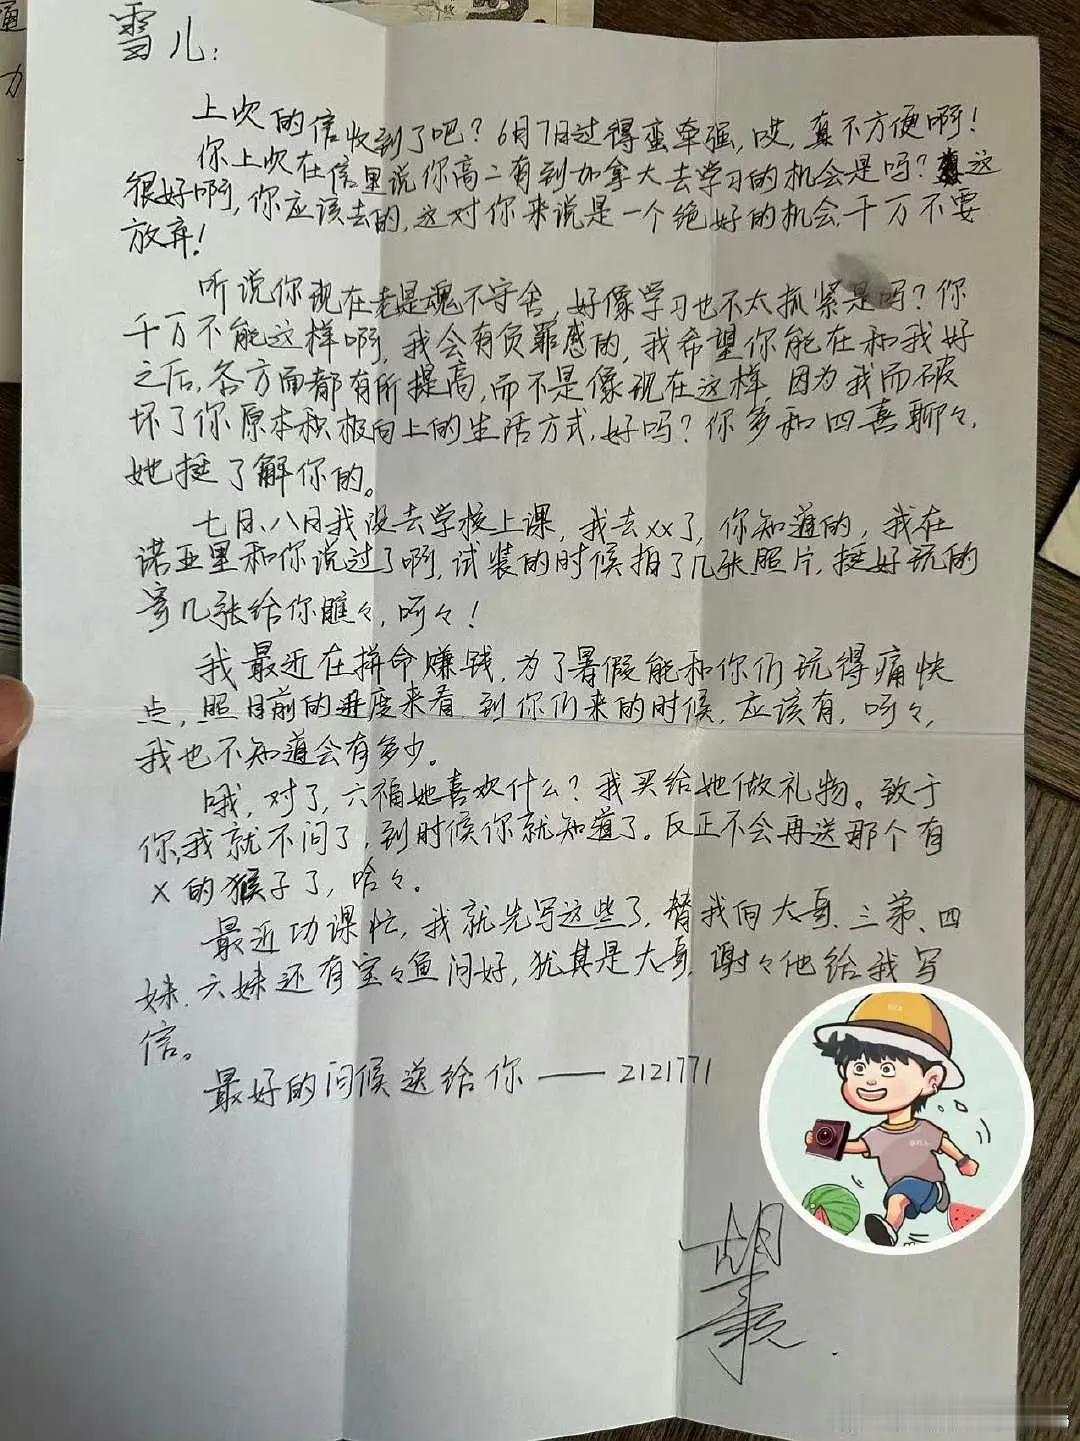 通
力
雪儿:
上次的信收到了吧?6月7日过得蛮牵强,哎,真不方便啊!
你上次在信里说你高二有到加拿大去学习的机会是吗?这
很好啊,你应该去的,这对你来说是一个绝好的机会,千万不要
放弃!
听说你现在老是魂不守舍,好像学习也不太抓紧是吗?你
千万不能这样啊,我会有负罪感的,我希望你能在和我好
之后,各方面都有所提高,而不是像现在这样,因为我而破
坏了你原本积极向上的生活方式,好吗?你多和四喜聊々,
她挺了解你的。
七月、八月我没去学校上课,我去xx了,你知道的,我在
诺亚里和你说过了啊,试装的时候拍了几张照片,挺好玩的
寄几张给你瞧々,呵々!
我最近在拼命赚钱,为了暑假能和你们玩得痛快
点,照目前的进度来看,到你们来的时候,应该有,呵々,
我也不知道会有多少。
哦,对了,六福她喜欢什么?我买给她做礼物。致于
你,我就不问了,到时候你就知道了。反正不会再送那个有
X的猴子了,哈々。
最近功课忙,我就先写这些了,替我向大哥、三弟、四
妹、六妹还有宝々鱼问好,犹其是大哥,谢々他给我写
信。
最好的问候送给你——2121771
胡